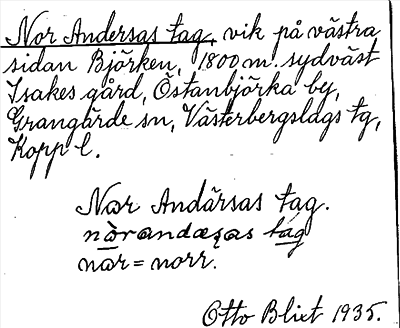 Nor Andersas tag, vik på västra
sidan Björken, 1800 m. sydväst
Isakes gård, Östanbjörka by,
Grangärde sn, Västerbergslags tg,
Kopp l.
Nar Andärsas tag.
nar = norr.
Otto Blixt 1935.